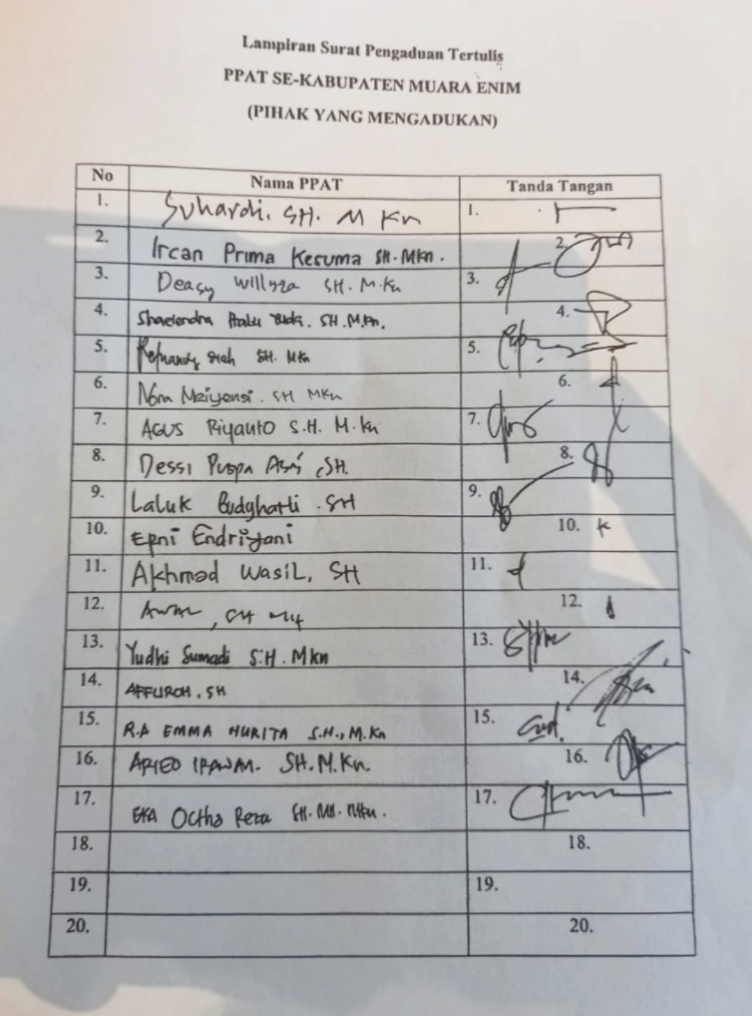 Lampiran Surat Pengaduan Tertulis
PPAT SE-KABUPATEN MUARA ENIM
(PIHAK YANG MENGADUKAN)
No Nama PPAT Tanda Tangan
1. Suhardi, SH. M Kn 1.
2. Ircan Prima Kesuma SH. MKn. 2.
3. Deasy Willyza SH. M.Kn 3.
4. SH. M.Kn. 4.
5. SH. MKn 5.
6. SH MKn 6.
7. Agus Riyanto S.H. M.Kn 7.
8. Dessi Puspa SH. 8.
9. Laluk Budgharti . SH 9.
10. Epni Endriyani 10.
11. Akhmad Wasil, SH 11.
12. 12.
13. Yudhi Sumadi S.H. MKn 13.
14. AFFUROH. SH 14.
15. R.A EMMA NURITA S.H., M.Kn 15.
16. ARIEO IRAWAN. SH. M.Kn. 16.
17. EKA Octha Reza SH. MH. MKn. 17.
18. 18.
19. 19.
20. 20.